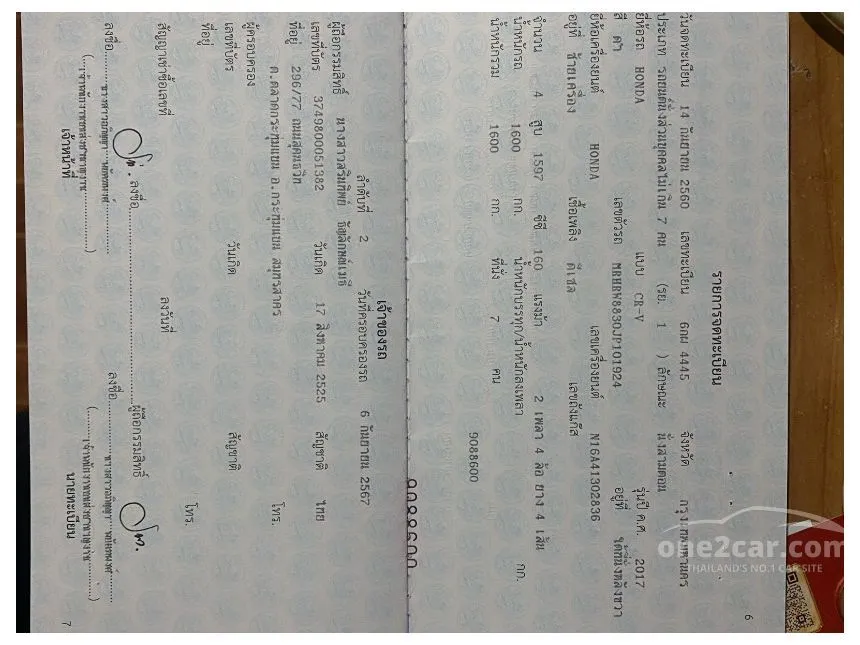 รายการจดทะเบียน
วันจดทะเบียน 14 กันยายน 2560 เลขทะเบียน 6กผ 4445 จังหวัด กรุงเทพมหานคร
ประเภท รถยนต์นั่งส่วนบุคคลไม่เกิน 7 คน (รย. 1 ) ลักษณะ นั่งสามตอน
ยี่ห้อรถ HONDA แบบ CR-V รุ่นปี ค.ศ. 2017
สี ดำ เลขตัวรถ MRHRW8830JP101924 อยู่ที่ ใต้ที่นั่งหลังขวา
ยี่ห้อเครื่องยนต์ HONDA เลขเครื่องยนต์ N16A41302836
อยู่ที่ ซ้ายเครื่อง เชื้อเพลิง ดีเซล เลขถังแก๊ส
จำนวน 4 สูบ 1597 ซีซี 160 แรงม้า 2 เพลา 4 ล้อ ยาง 4 เส้น
น้ำหนักรถ 1600 กก. น้ำหนักบรรทุก/น้ำหนักลงเพลา กก.
น้ำหนักรวม 1600 กก. ที่นั่ง 7 คน
9088600
9088600
6
เจ้าของรถ
ลำดับที่ 2 วันที่ครอบครองรถ 6 กันยายน 2567
ผู้ถือกรรมสิทธิ์ นางสาวสรินทิพย์
เลขที่บัตร 3749800051382 วันเกิด 17 สิงหาคม 2525 สัญชาติ ไทย
ที่อยู่ 296/77 ถนนสุคนธวิท
ต.ตลาดกระทุ่มแบน อ.กระทุ่มแบน สมุทรสาคร โทร.
ผู้ครอบครอง
เลขที่บัตร วันเกิด สัญชาติ
ที่อยู่ โทร.
สัญญาเช่าซื้อเลขที่ ลงวันที่
ลงชื่อ ผู้ถือกรรมสิทธิ์
ลงชื่อ ลงชื่อ
เจ้าหน้าที่ นายทะเบียน
7
one2car.com
THAILAND'S NO.1 CAR SITE